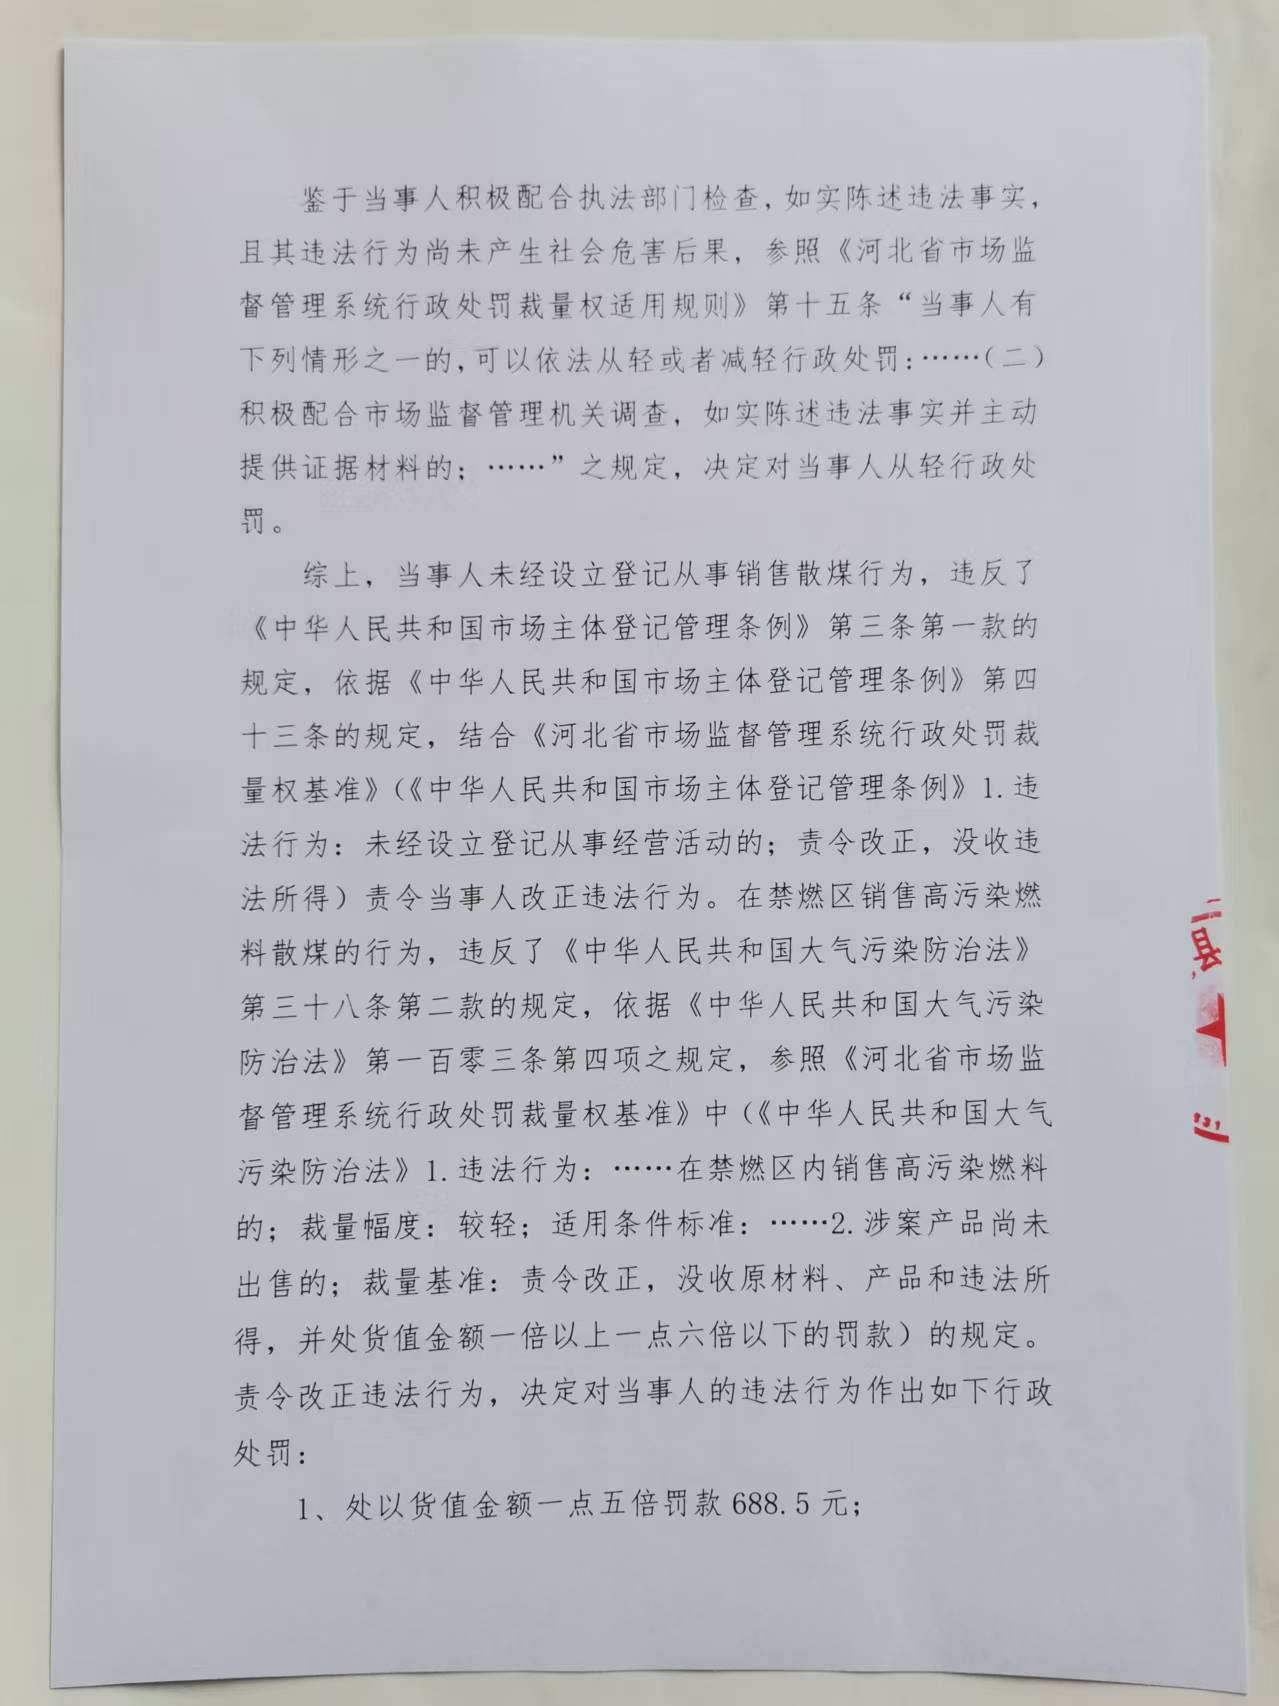 鉴于当事人积极配合执法部门检查，如实陈述违法事实，
且其违法行为尚未产生社会危害后果，参照《河北省市场监
督管理系统行政处罚裁量权适用规则》第十五条“当事人有
下列情形之一的，可以依法从轻或者减轻行政处罚：……（二）
积极配合市场监督管理机关调查，如实陈述违法事实并主动
提供证据材料的；……”之规定，决定对当事人从轻行政处
罚。
综上，当事人未经设立登记从事销售散煤行为，违反了
《中华人民共和国市场主体登记管理条例》第三条第一款的
规定，依据《中华人民共和国市场主体登记管理条例》第四
十三条的规定，结合《河北省市场监督管理系统行政处罚裁
量权基准》（《中华人民共和国市场主体登记管理条例》1.违
法行为：未经设立登记从事经营活动的；责令改正，没收违
法所得）责令当事人改正违法行为。在禁燃区销售高污染燃
料散煤的行为，违反了《中华人民共和国大气污染防治法》
第三十八条第二款的规定，依据《中华人民共和国大气污染
防治法》第一百零三条第四项之规定，参照《河北省市场监
督管理系统行政处罚裁量权基准》中（《中华人民共和国大气
污染防治法》1.违法行为：……在禁燃区内销售高污染燃料
的；裁量幅度：较轻；适用条件标准：……2.涉案产品尚未
出售的；裁量基准：责令改正，没收原材料、产品和违法所
得，并处货值金额一倍以上一点六倍以下的罚款）的规定。
责令改正违法行为，决定对当事人的违法行为作出如下行政
处罚：
1、处以货值金额一点五倍罚款 688.5 元；
县
131